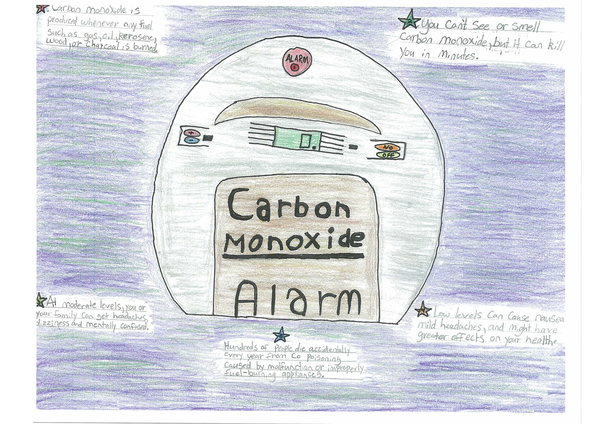 Carbon monoxide is
produced whenever any fuel
such as gas, oil, kerosene,
wood, or charcoal is burned
You Can't See or Smell
Carbon monoxide, but it can kill
You in minutes.
ALARM
NO
OFF
Carbon
Monoxide
Alarm
At moderate levels, you or
your family can get headaches,
dizziness and mentally confused.
Low levels can cause nausea
mild headaches, and might have
greater affects on your healthe.
Hundreds of people die accidentally
every year from Co poisoning
caused by malfunction or improperly
fuel-burning appliances.